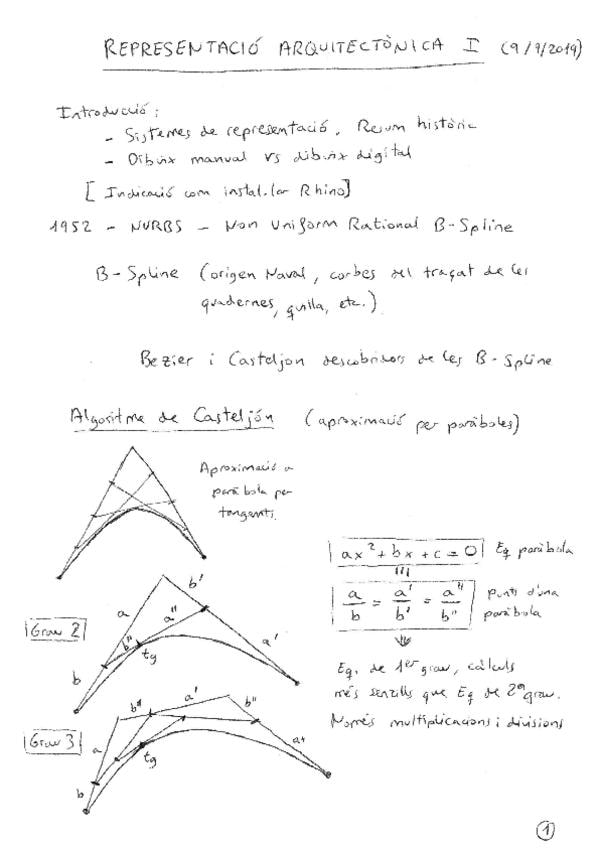 REPRESENTACIÓ ARQUITECTÒNICA I (9/9/2019)
Introducció:
- Sistemes de representació. Resum històric
- Dibuix manual vs dibuix digital
[Indicació com instal.lar Rhino]
1952 - NURBS - Non Uniform Rational B-Spline
B-Spline (origen Naval, corbes del traçat de les
quadernes, quilla, etc.)
Bezier i Casteljon descobridors de les B-Spline
Algoritme de Casteljón (aproximació per paràboles)
Aproximació a
paràbola per
tangents.
ax² + bx + c = 0 Eq paràbola
a/b = a'/b' = a"/b" punts d'una
paràbola
Eq. de 1er grau, càlculs
més senzills que Eq de 2º grau.
Només multiplicacions i divisions
Grau 2
a b' a" b" tg a' b
Grau 3
b" a' b" a tg a" b
1